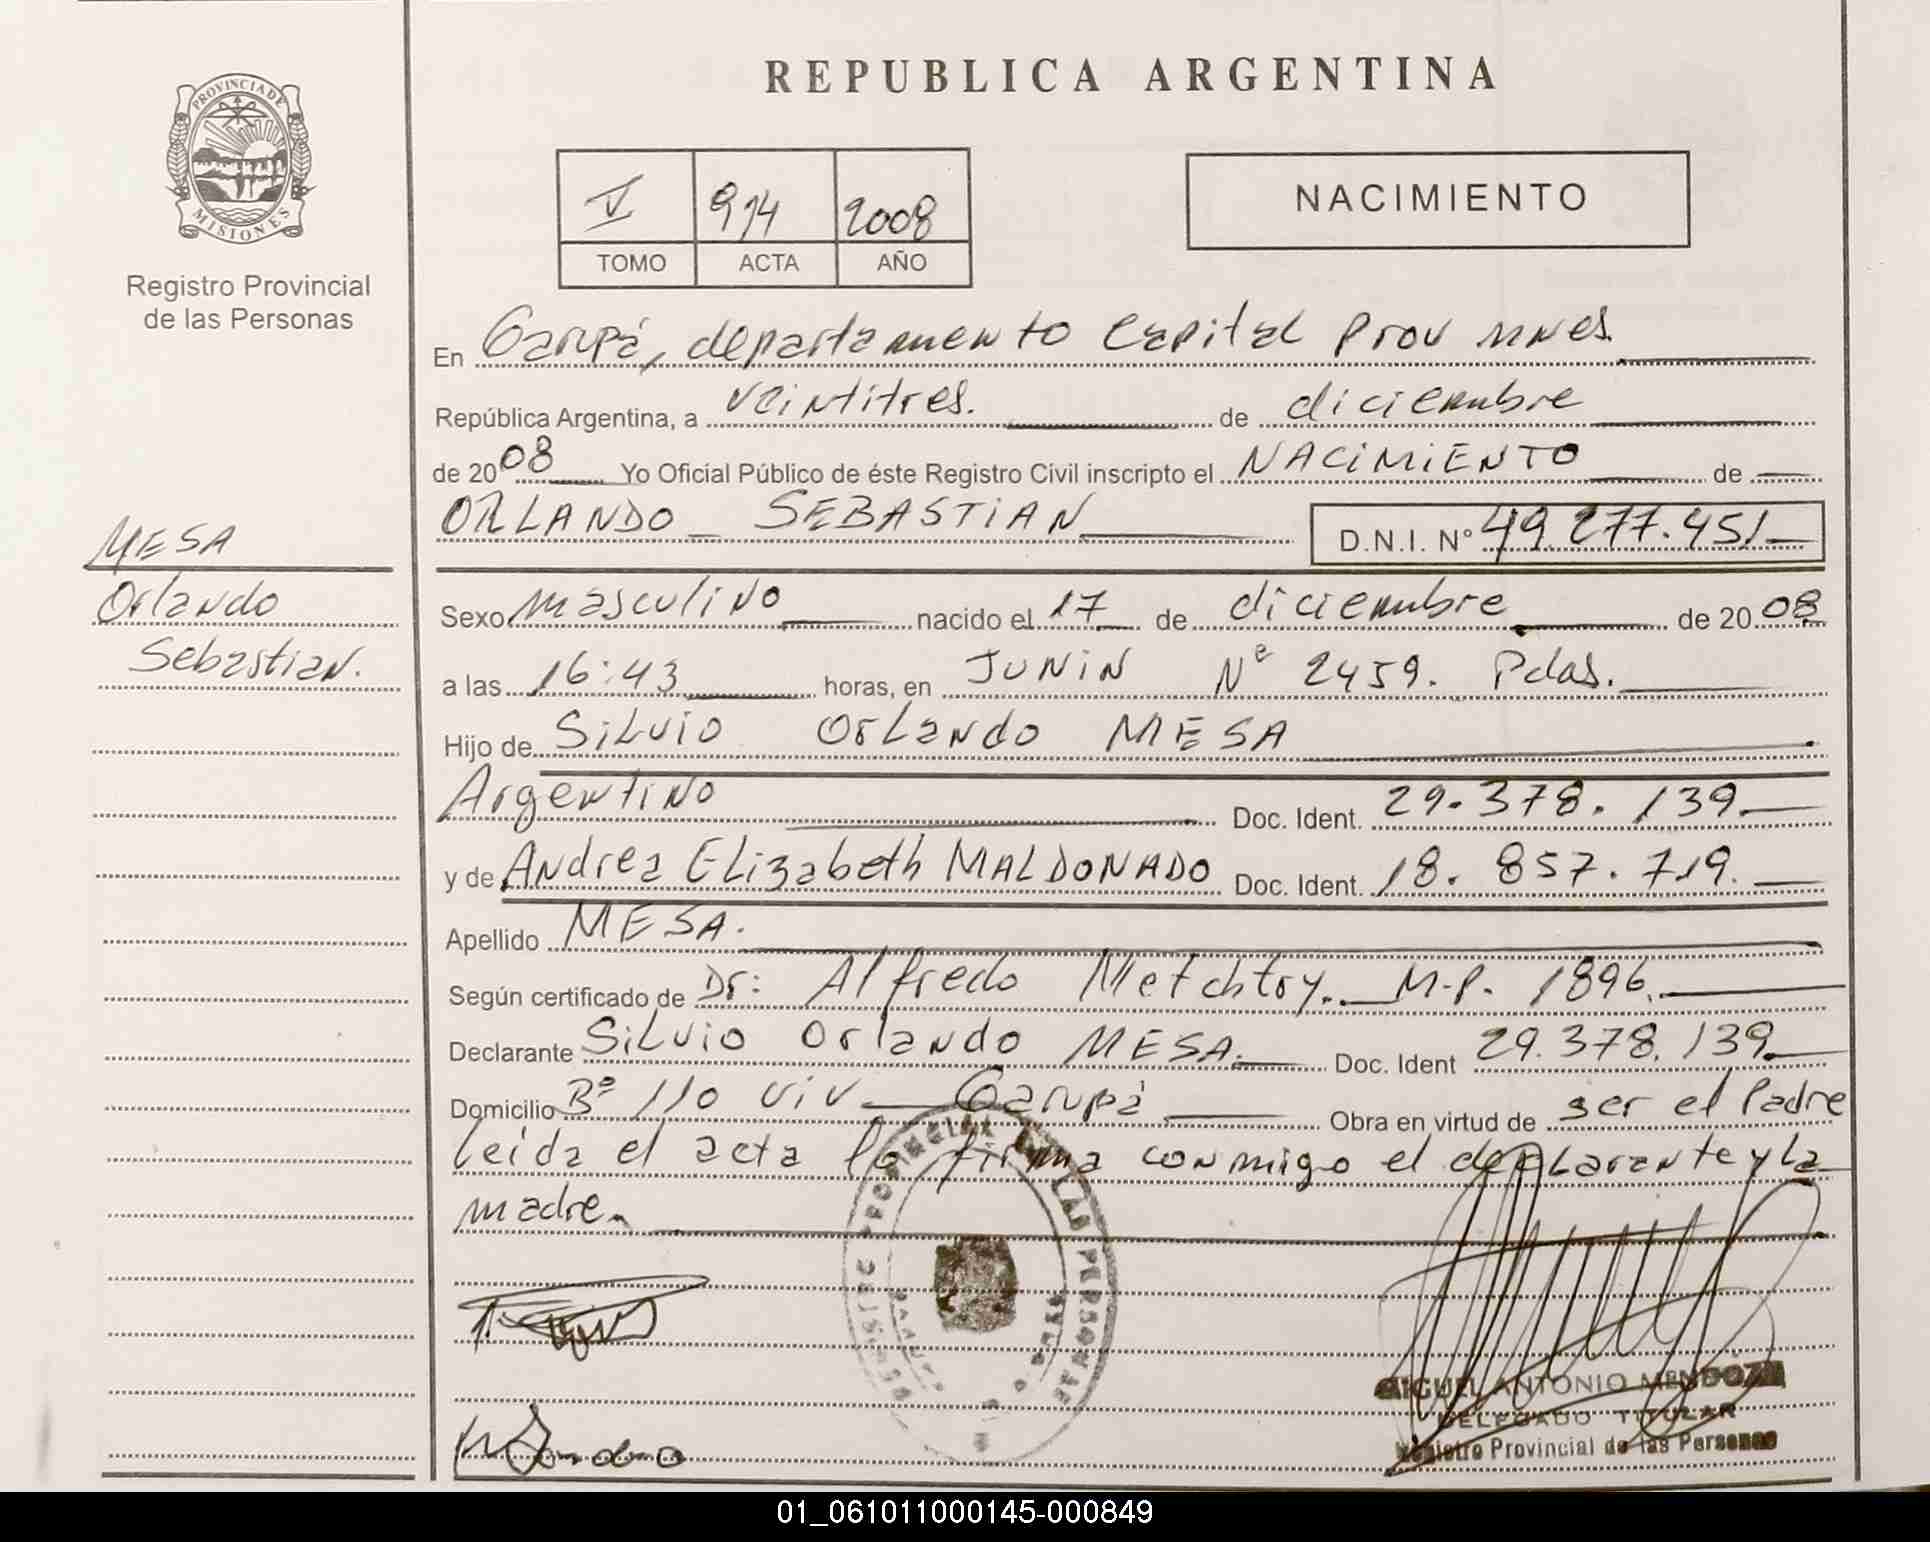 REPUBLICA ARGENTINA
PROVINCIA DE
MISIONES
Registro Provincial
de las Personas
V 914 2008
TOMO ACTA AÑO
NACIMIENTO
En Garupá, departamento Capital Prov mnes.
República Argentina, a veintitres. de diciembre
de 2008 Yo Oficial Público de éste Registro Civil inscripto el NACIMIENTO de
ORLANDO SEBASTIAN D.N.I. N° 49.277.451
MESA
Orlando
Sebastian.
Sexo masculino nacido el 17 de diciembre de 2008
a las 16:43 horas, en JUNIN Nº 2459. Pdas.
Hijo de SiLvio OrLando MESA
Argentino Doc. Ident. 29.378.139.
y de Andrea ELizabeth MALDONADO Doc. Ident. 18.857.719.
Apellido MESA.
Según certificado de Dr: Alfredo Metchtry. M.P. 1896.
Declarante SiLvio Orlando MESA. Doc. Ident 29.378.139
Domicilio Bº 110 viv Garupá Obra en virtud de ser el Padre
Leida el acta la firma conmigo el declarante y La
madre.
MIGUEL ANTONIO MENDOZA
DELEGADO TITULAR
Registro Provincial de las Personas
01_061011000145-000849